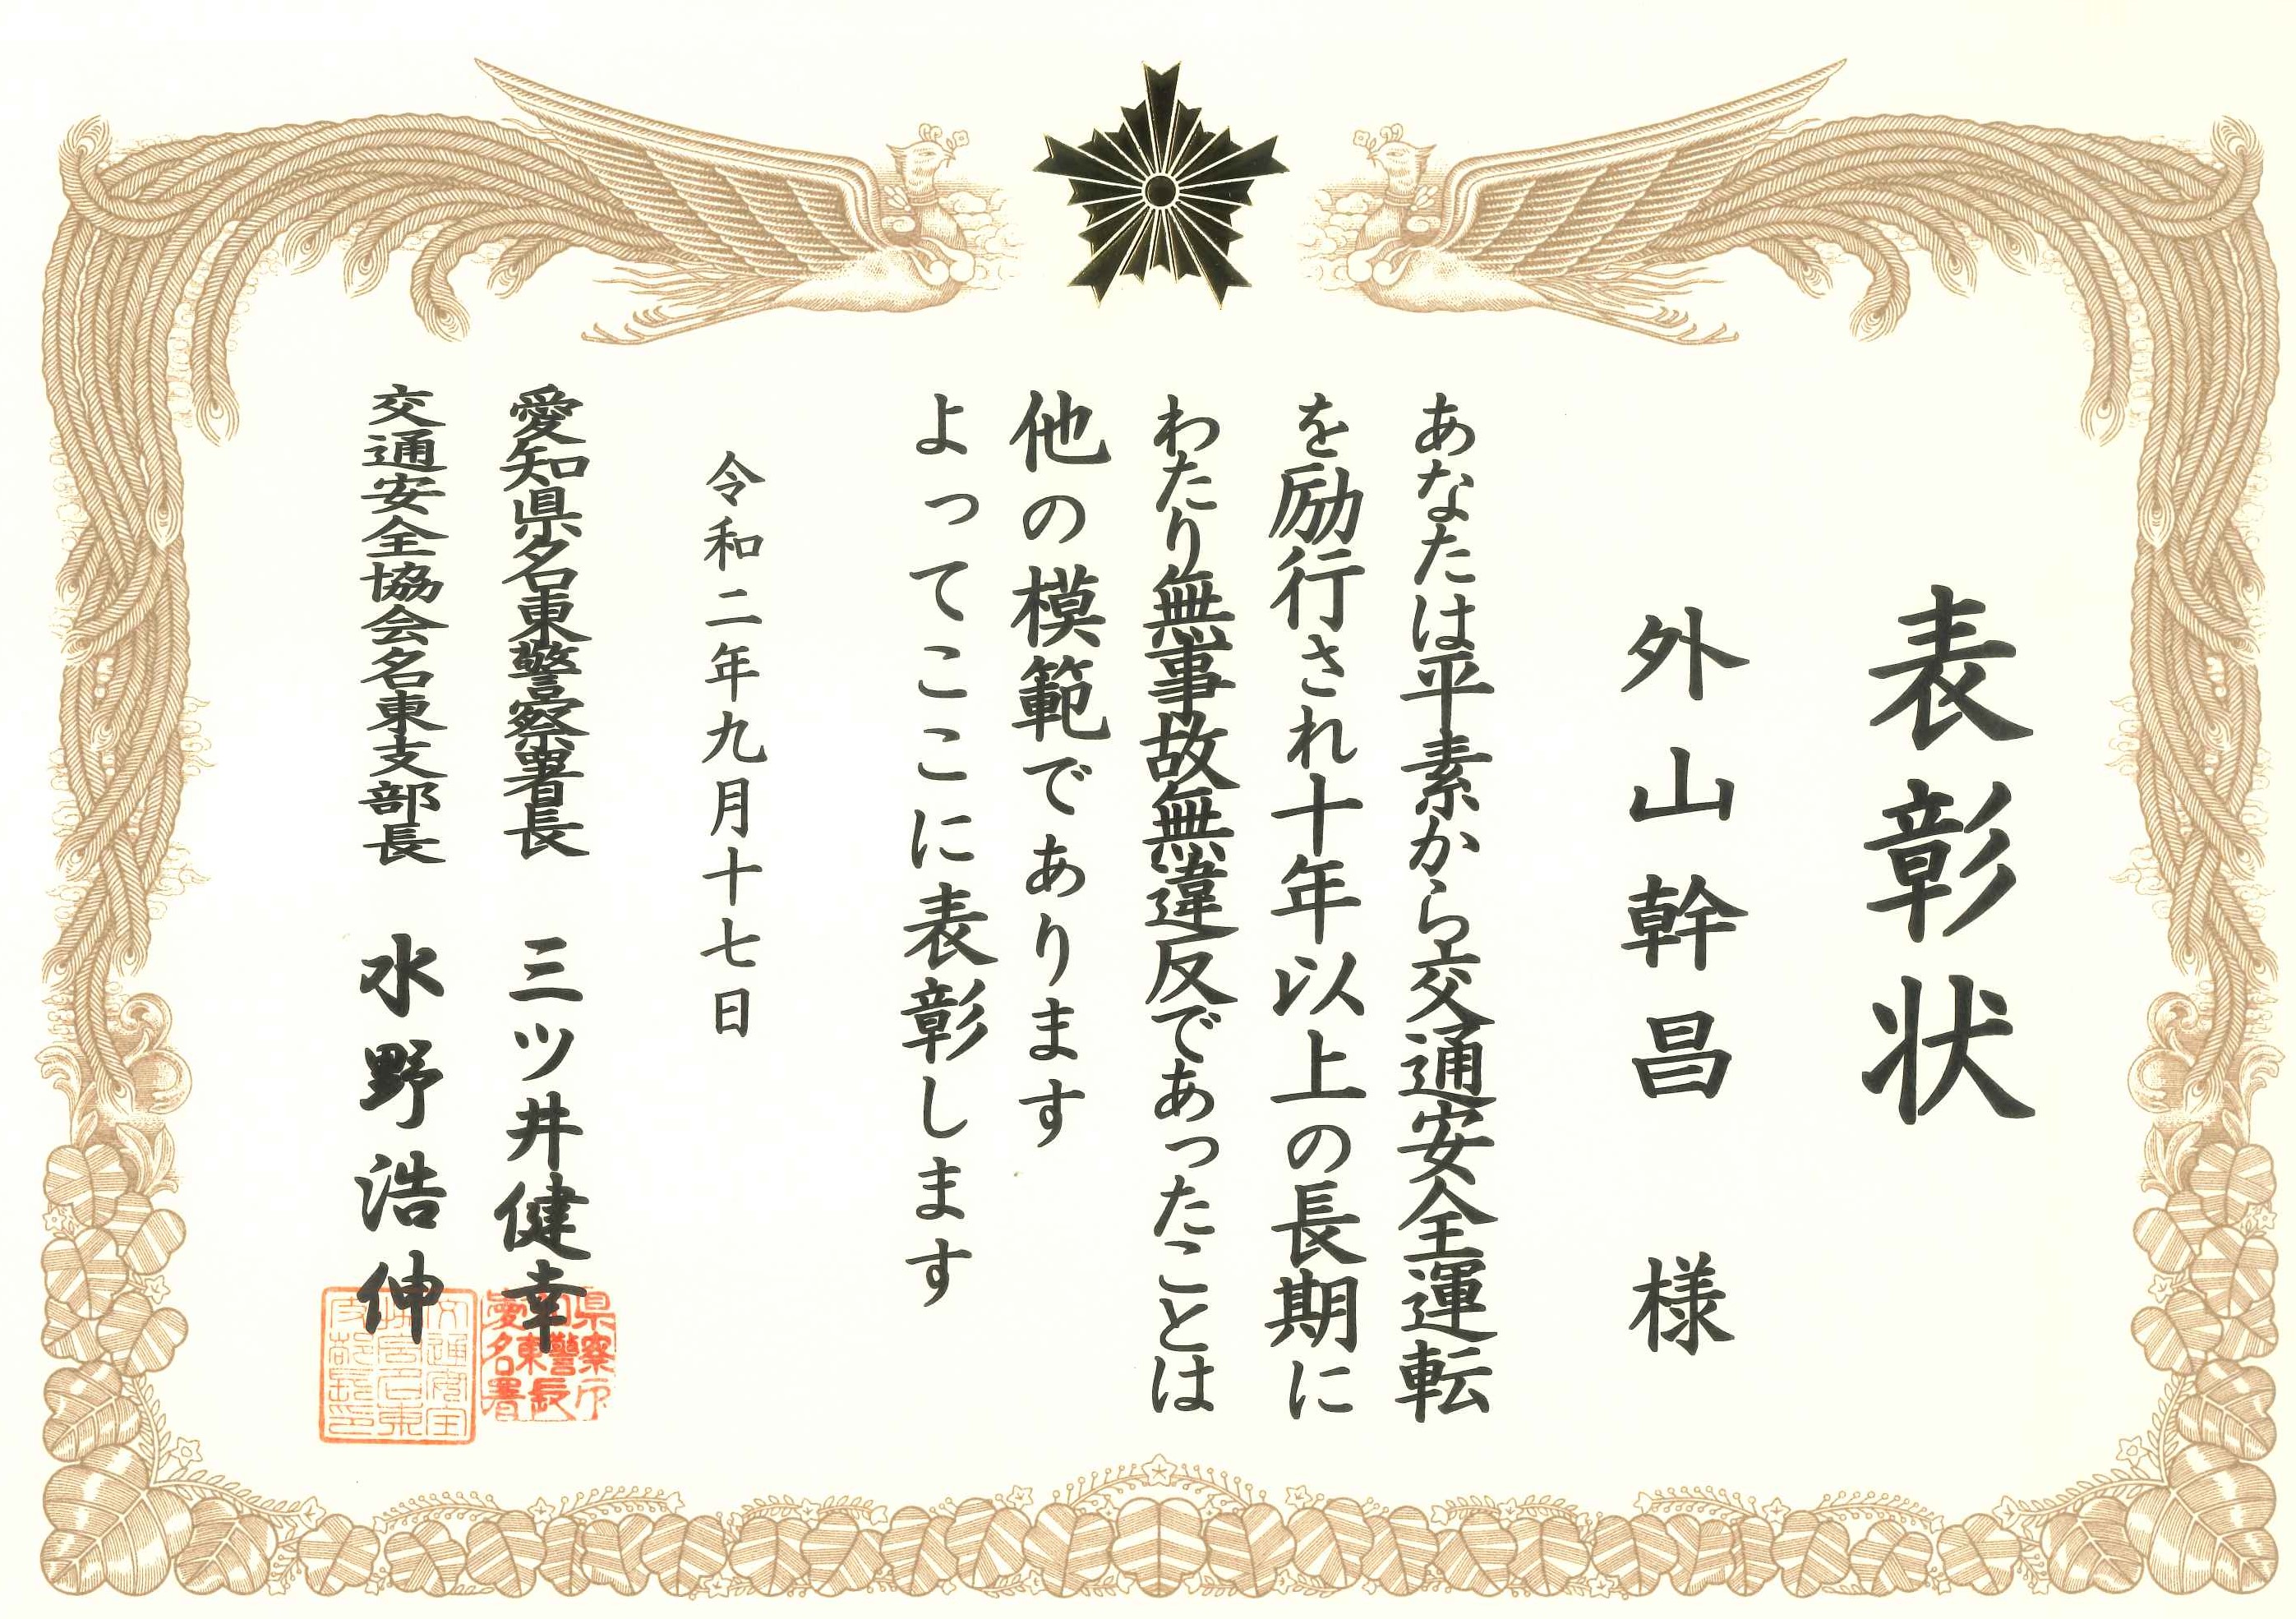 表彰状
外山幹昌 様
あなたは平素から交通安全運転
を励行され十年以上の長期に
わたり無事故無違反であったことは
他の模範であります
よってここに表彰します
令和二年九月十七日
愛知県名東警察署長 三ツ井健幸
交通安全協会名東支部長 水野浩伸